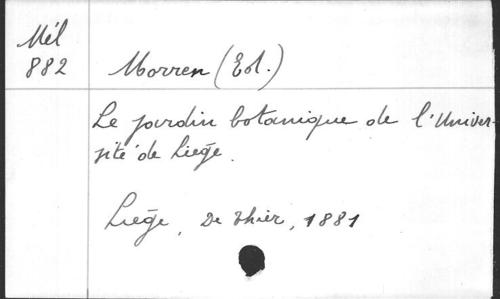 Mél
882
Morren (Ed.)
Le jardin botanique de l'Univer-
sité de Liège.
Liège, De Thier, 1881